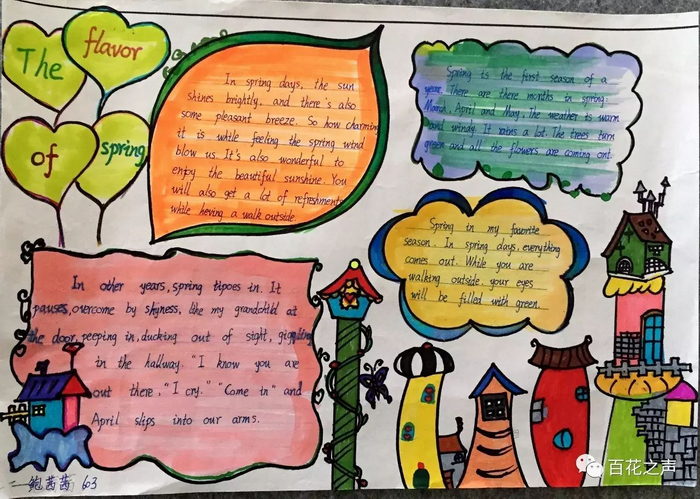 The
flavor
of
spring
In spring days, the sun
shines brightly. and there's also
some pleasant breeze. So how charming
it is while feeling the spring wind
blow us. It's also wonderful to
enjoy the beautiful sunshine. You
will also get a lot of refreshments
while having a walk outside.
Spring is the first season of a
year. There are there months in spring:
March, April and May. The weather is warm
and windy. It rains a lot. The trees turn
green and all the flowers are coming out.
Spring in my favorite
season. In spring days everything
comes out. While you are
walking outside your eyes
will be filled with green.
In other years, spring tipoes in. It
pauses, overcome by shyness, like my grandchild at
the door, peeping in, ducking out of sight, giggling
in the hallway. "I know you are
out there, "I cry." "Come in" and
April slips into our arms.
鲍茜茜 603
百花之声